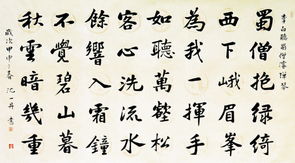 李白聽蜀僧濬彈琴
蜀僧抱綠綺
西下峨眉峰
為我一揮手
如聽萬壑松
客心洗流水
餘響入霜鐘
不覺碧山暮
秋雲暗幾重
歲次甲申之春 沈一丹書